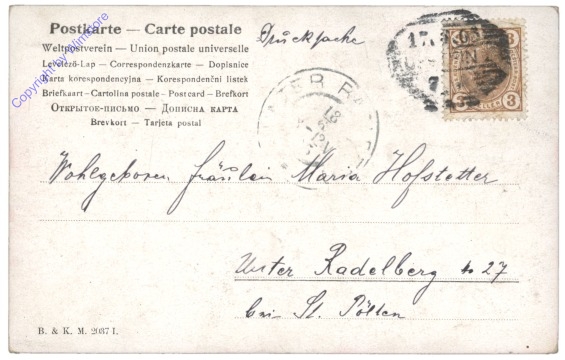 Postkarte — Carte postale
Weltpostverein — Union postale universelle
Levelező-Lap — Correspondenzkarte — Dopisnice
Karta korespondencyjna — Korespondenční lístek
Briefkaart - Cartolina postale - Postcard - Brefkort
ОТКРЫТОЕ-ПИСЬМО — ДОПИСНА КАРТА
Brevkort — Tarjeta postal
Drucksache
3
3
7
Wohlgeboren Fräulein Maria Hofstetter
Unter Radelberg No 27
bei St. Pölten
B. & K. M. 2037 I.